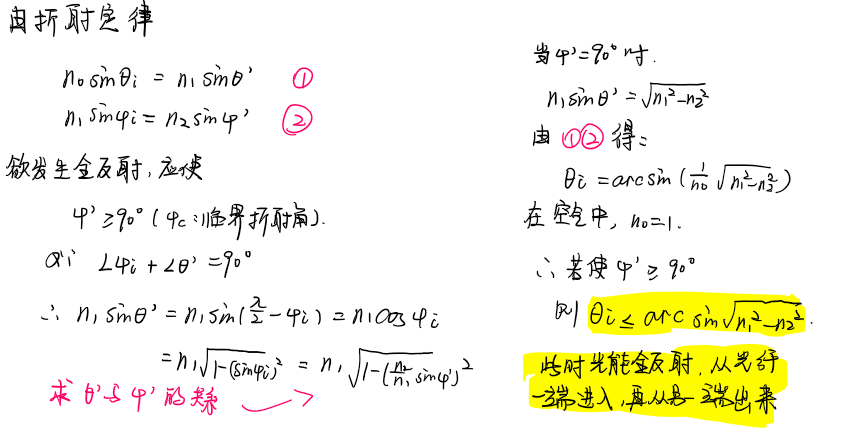 由折射定律
n₀sinθi = n₁sinθ' ①
n₁sinφi = n₂sinφ' ②
欲发生全反射,应使
φ'≥90°(φc:临界折射角).
又∵ ∠φi+∠θ'=90°
∴ n₁sinθ' = n₁sin(π/2-φi) = n₁cosφi
= n₁√(1-(sinφi)²) = n₁√(1-(n₂/n₁ sinφ')²)
求θ'与φ'的关系
当φ'=90°时.
n₁sinθ' = √(n₁²-n₂²)
由①②得:
θi = arcsin(1/n₀ √(n₁²-n₂²))
在空气中, n₀=1.
∴若使φ'≥90°
则 θi ≤ arcsin√(n₁²-n₂²).
此时光能全反射,从光纤
一端进入,再从另一端出来